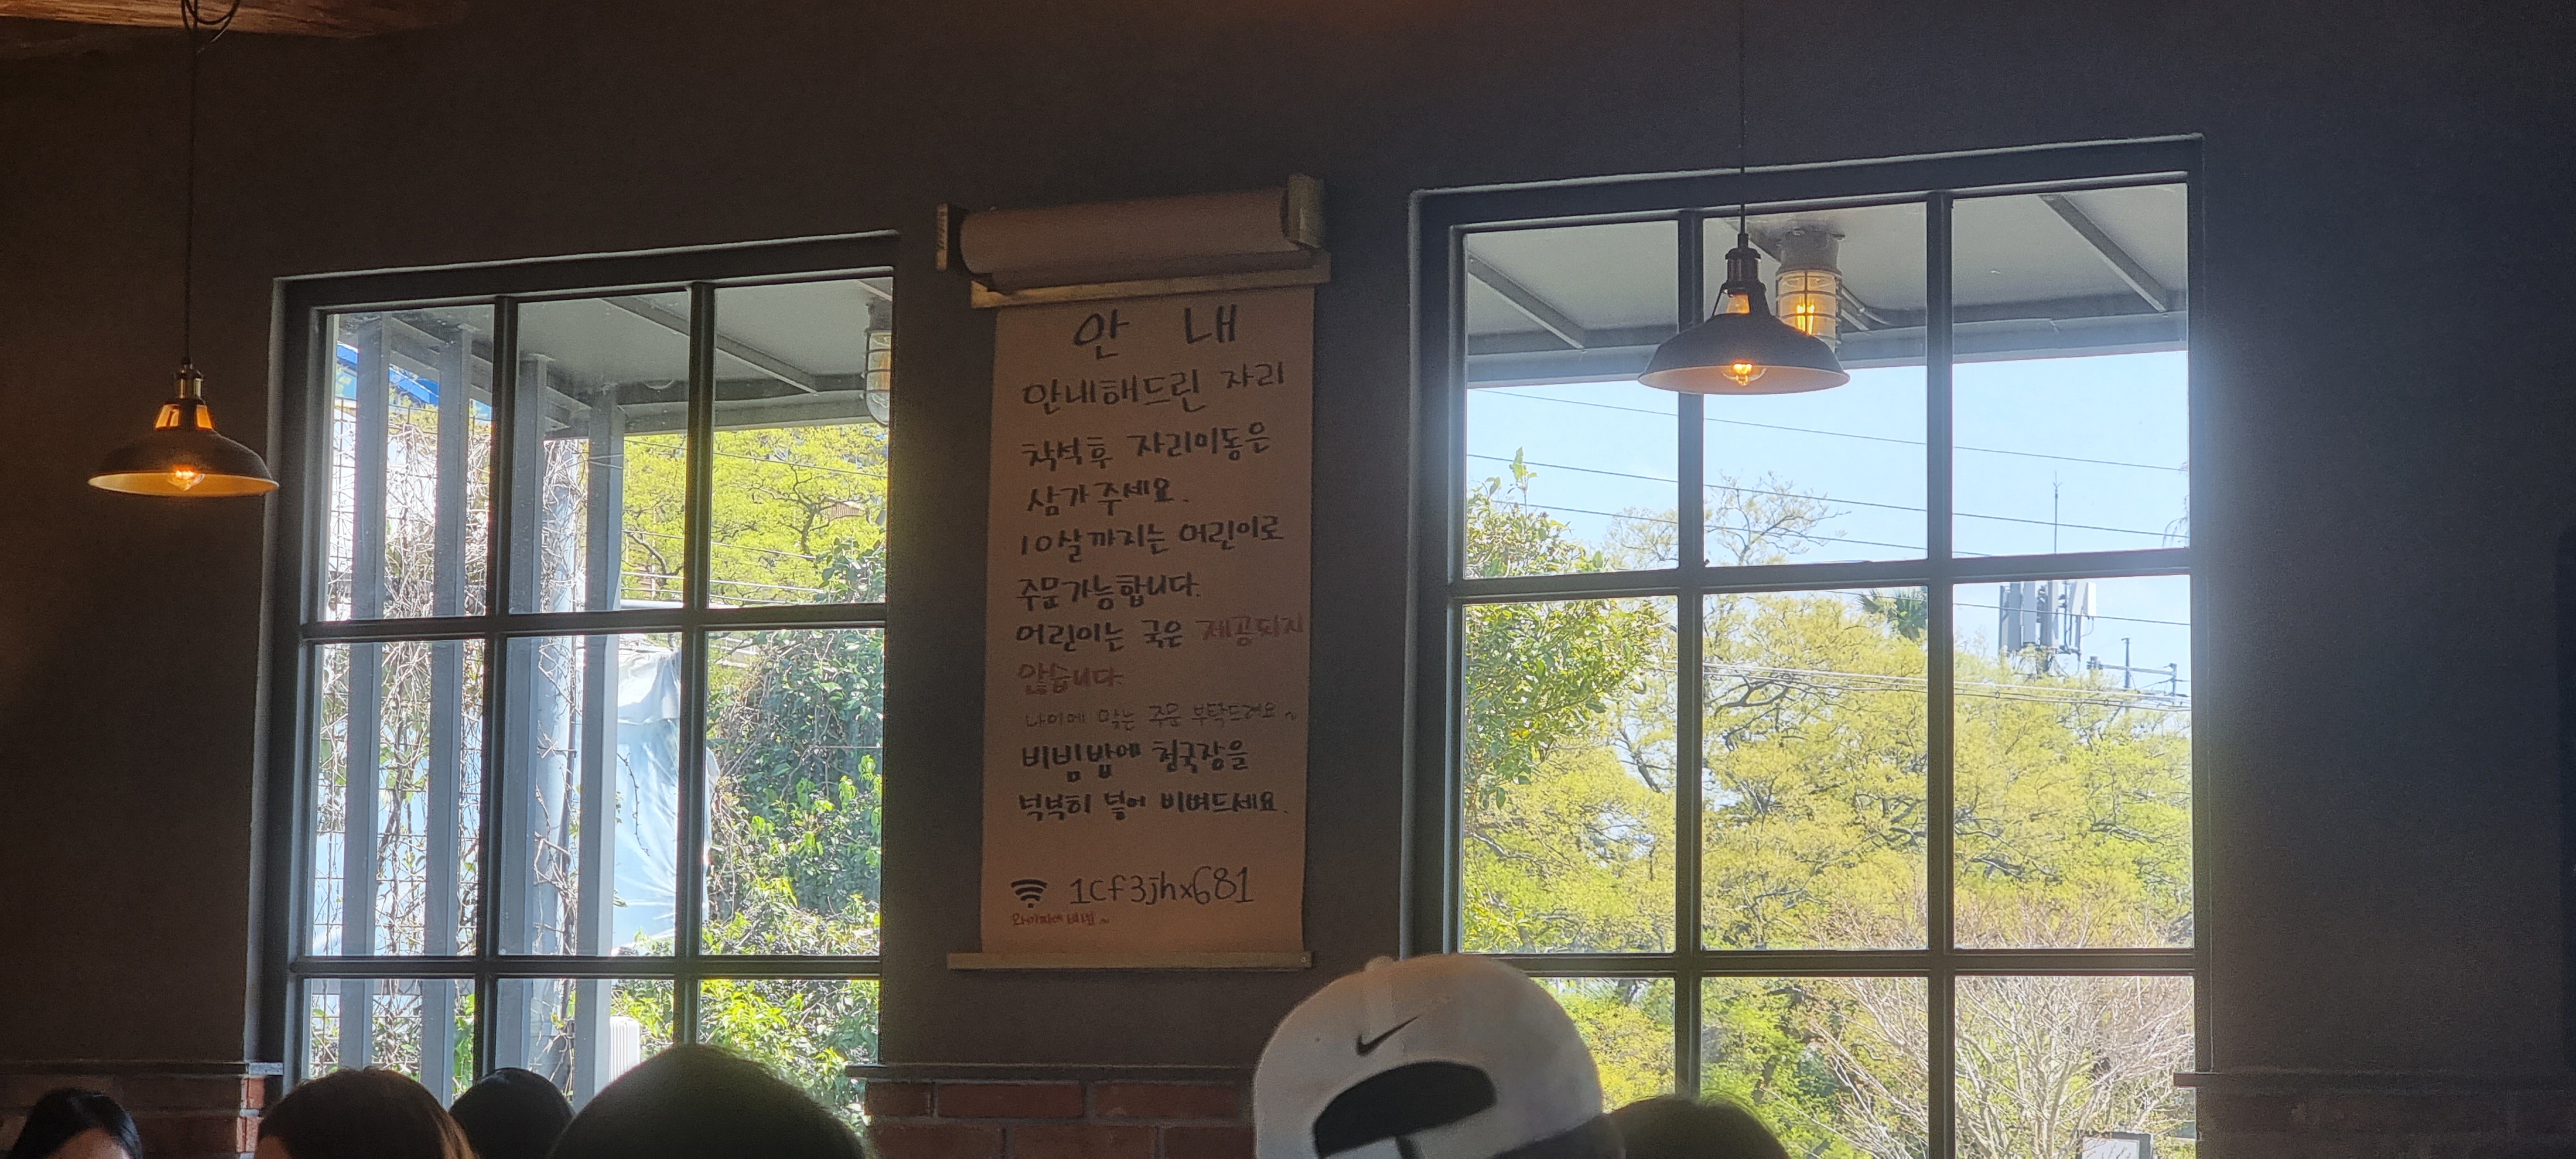 안 내
안내해드린 자리
착석후 자리이동은
삼가주세요.
10살까지는 어린이로
주문가능합니다.
어린이는 국은 제공되지
않습니다.
나이에 맞는 주문 부탁드려요~
비빔밥에 청국장을
넉넉히 넣어 비벼드세요.
1cf3jhx681
와이파이 비번~